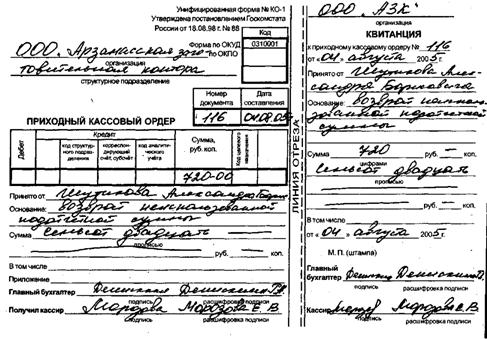 Унифицированная форма № КО-1
Утверждена постановлением Госкомстата
России от 18.08.98 г. № 88
Код
Форма по ОКУД 0310001
по ОКПО
ООО "Арзамасская заго-
товительная контора
организация
структурное подразделение
Номер документа
Дата составления
ПРИХОДНЫЙ КАССОВЫЙ ОРДЕР
116
04.08.05
Дебет
Кредит
код структурного подразделения
корреспондирующий счёт, субсчёт
код аналитического учёта
Сумма, руб. коп.
Код целевого назначения
720-00
Принято от Александра
Основание: возврат неиспользованной
подотчетной суммы
Сумма семьсот двадцать —
прописью
руб. — коп.
В том числе
Приложение
Главный бухгалтер
подпись
расшифровка подписи
Получил кассир Морозова Морозова Е. В.
подпись
расшифровка подписи
ЛИНИЯ ОТРЕЗА
ООО "АЗК"
организация
КВИТАНЦИЯ
к приходному кассовому ордеру № 116
от «04» августа 2005 г.
Принято от Алек-
сандра Борисовича
Основание: возврат неиспол-
зованной подотчетной
суммы
Сумма 720 руб. — коп.
цифрами
семьсот двадцать
прописью
руб. — коп.
В том числе
от «04» августа 2005 г.
М. П. (штампа)
Главный
бухгалтер
подпись
расшифровка подписи
Кассир Морозова Е. В.
подпись
расшифровка подписи